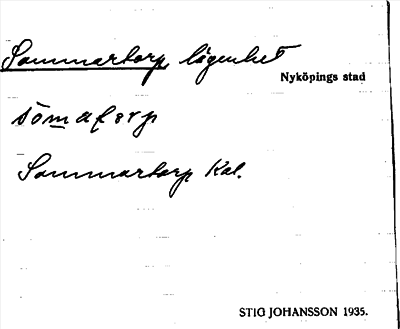 Sommartorp lägenhet
Nyköpings stad
Sommartorp Kal.
STIG JOHANSSON 1935.